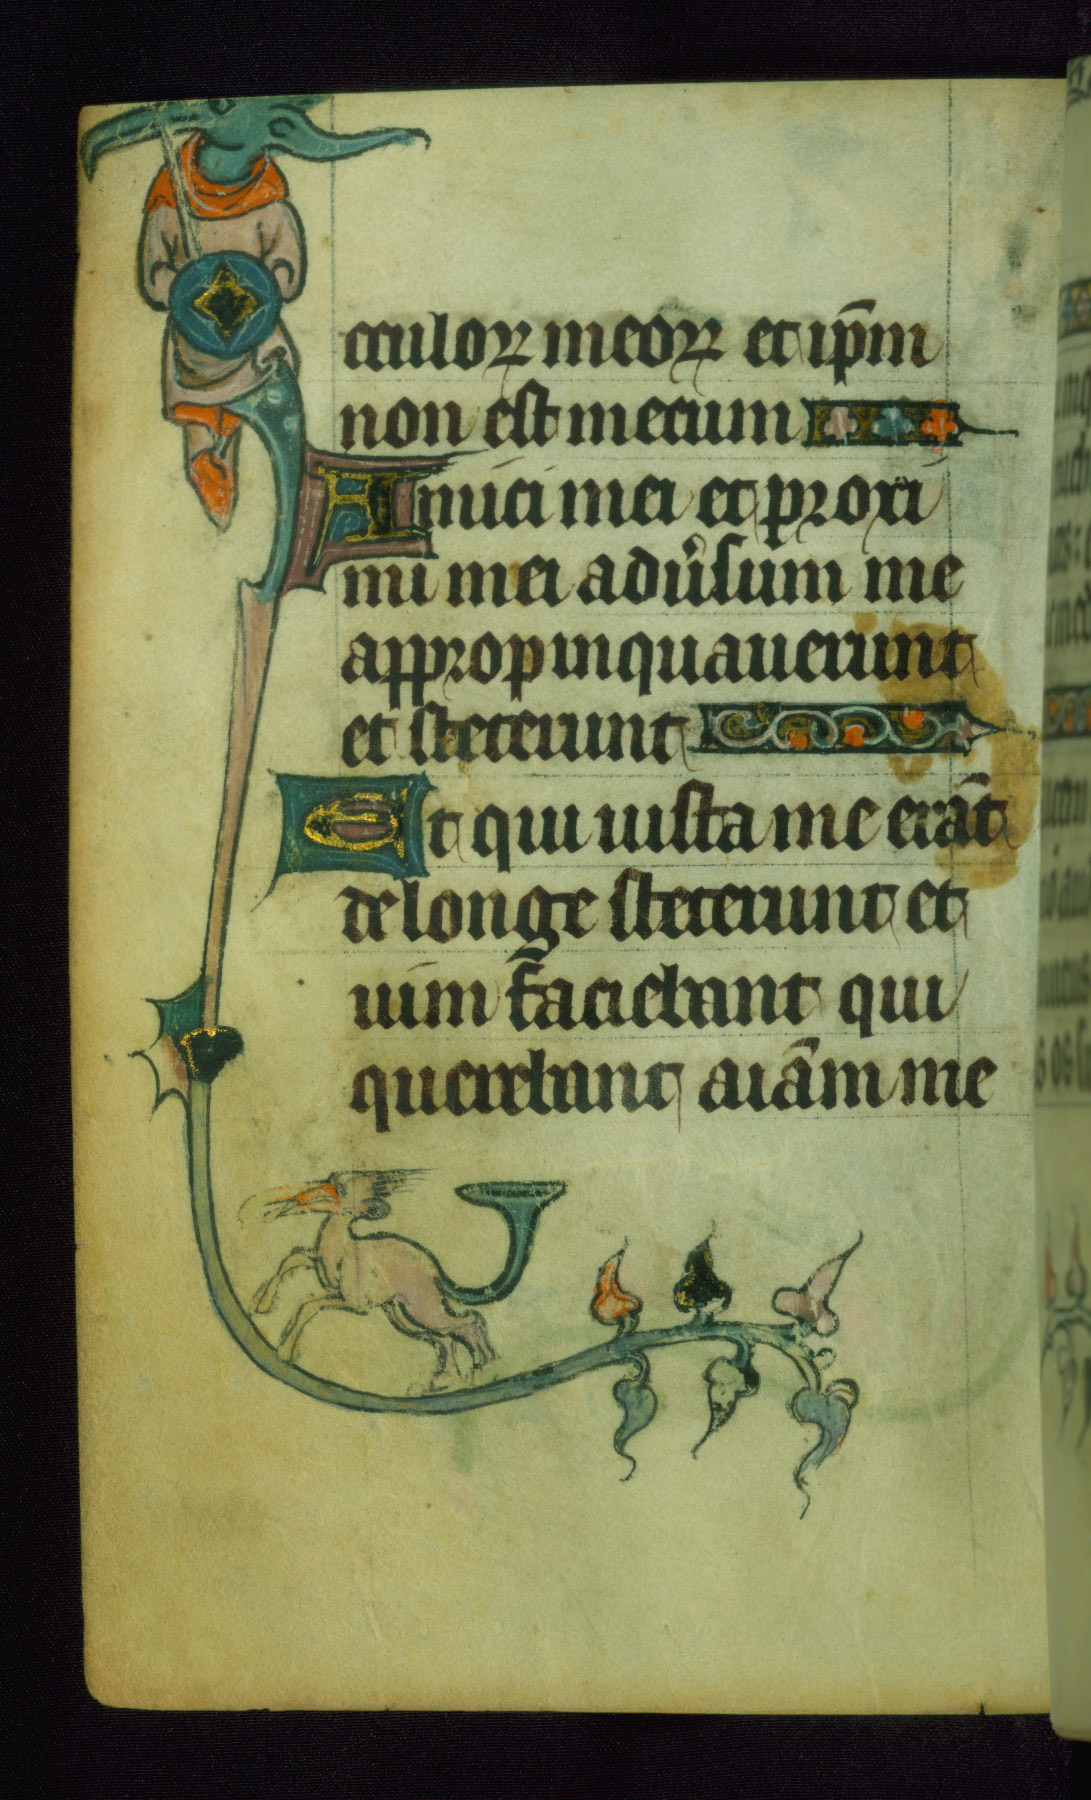 cculoꝝ meoꝝ et ip̄m
non est mecum
Amici mei et proxi
mi mei adu͛sum me
appropinquauerunt
et steterunt
Et qui iusta me erāt
de longe steterunt et
uim faciebant qui
querebant aīam me